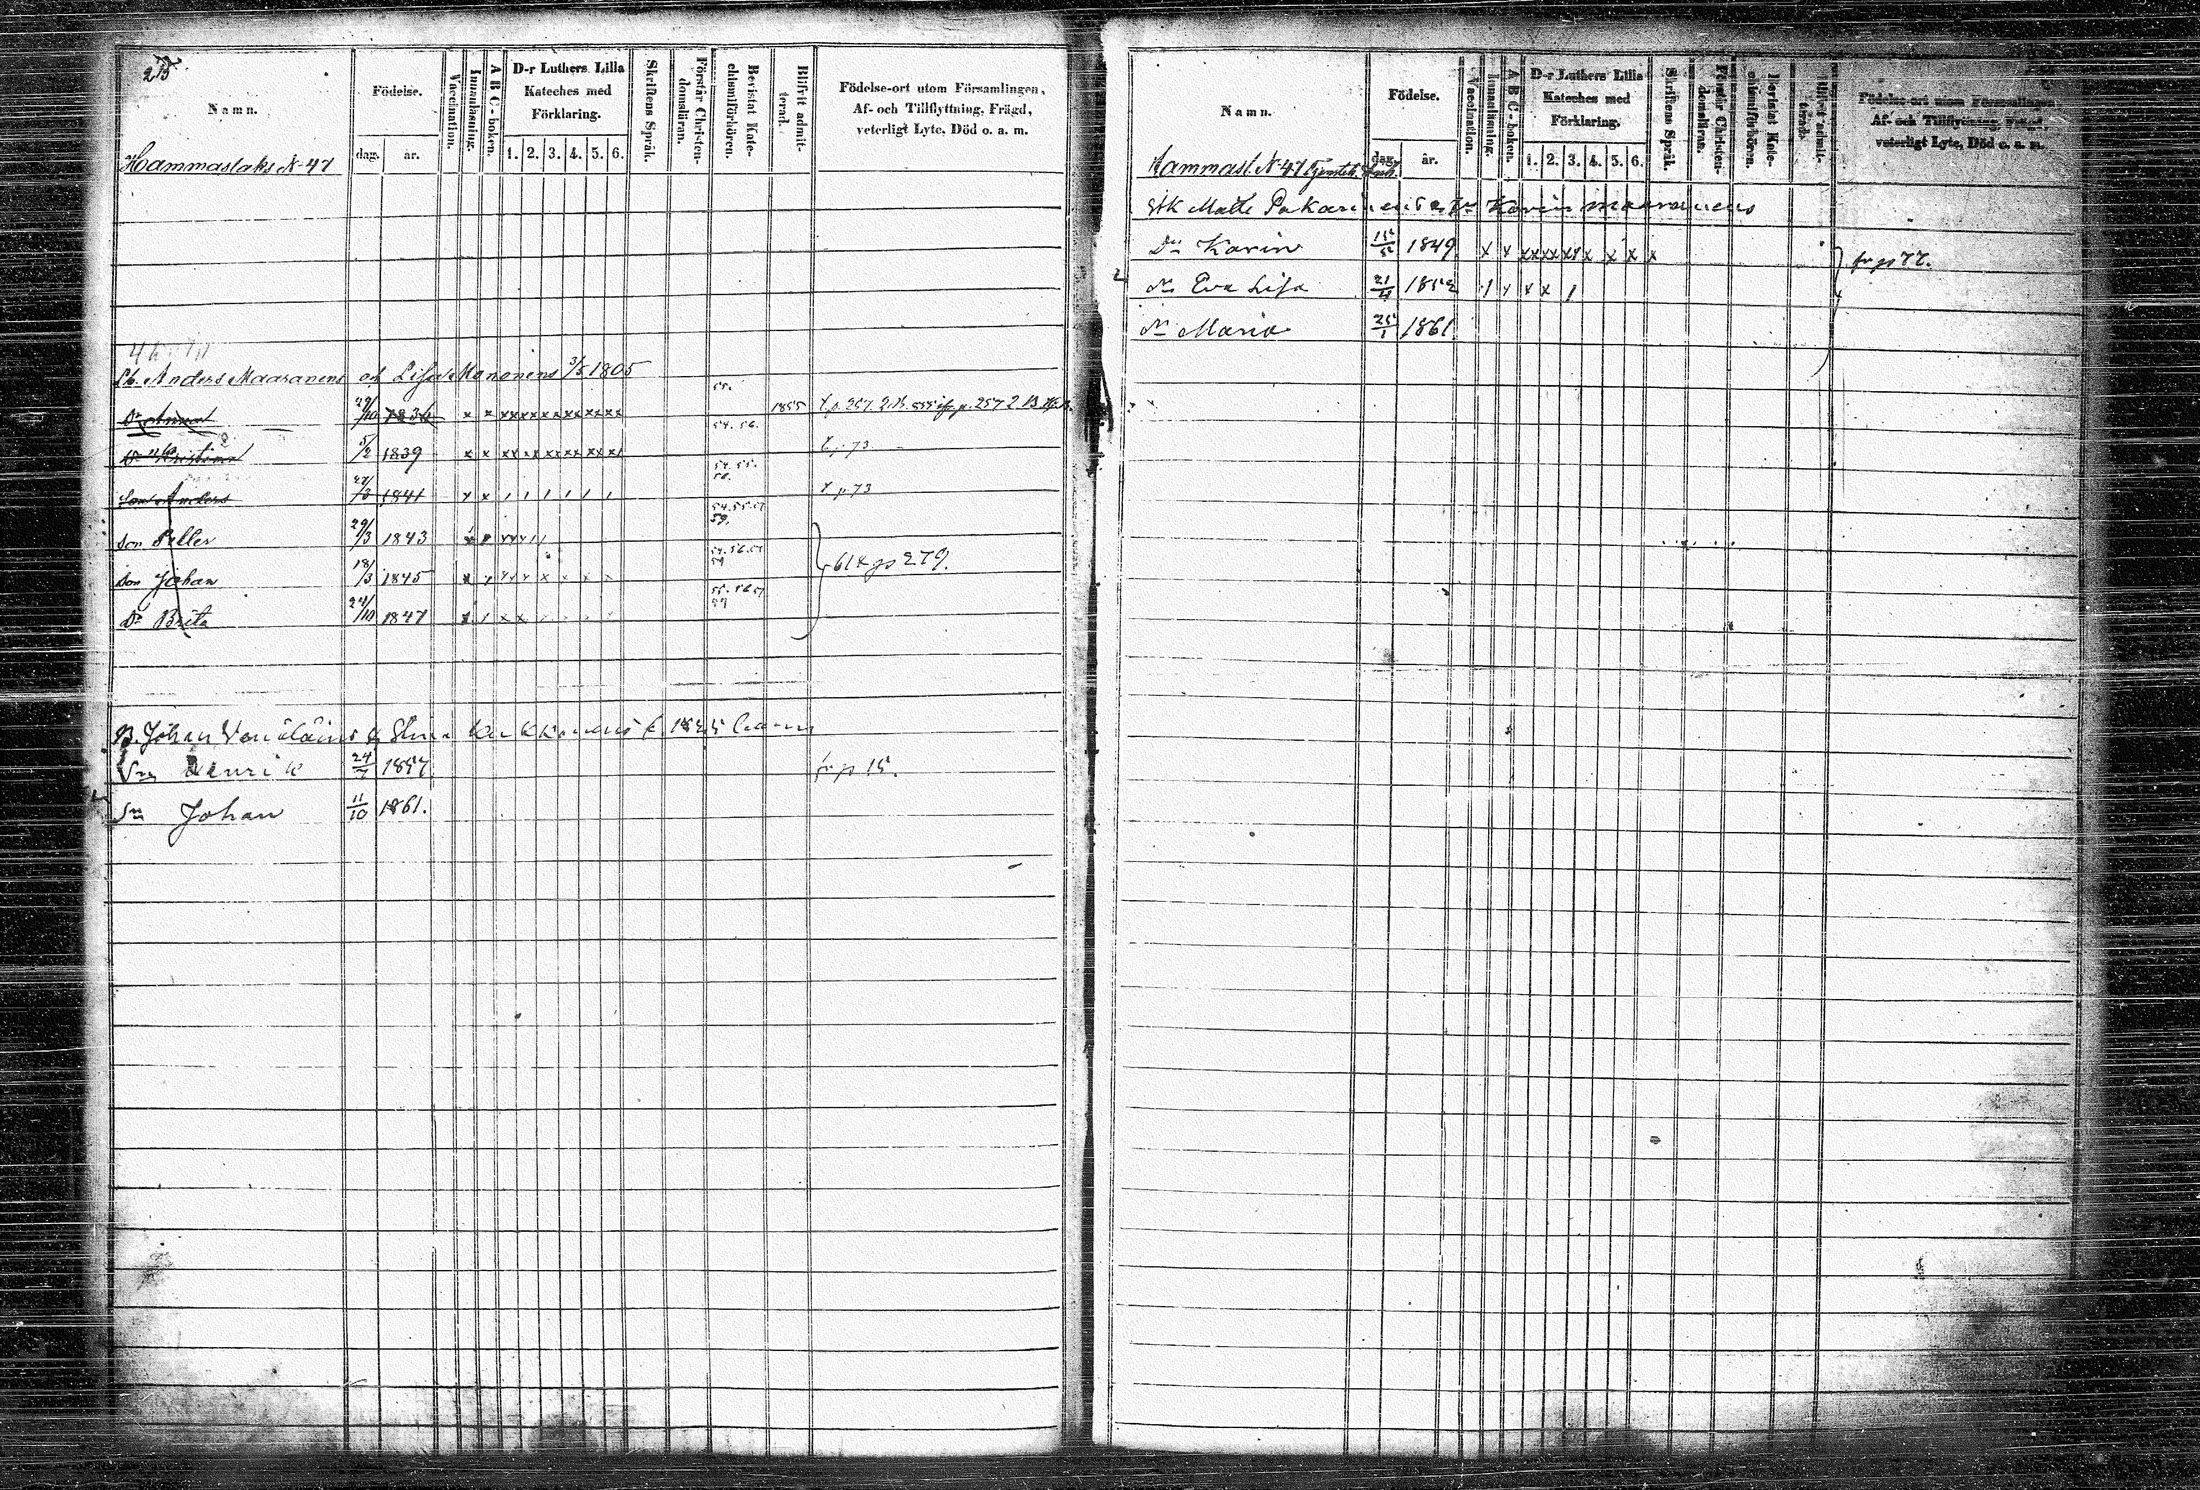 275
Namn.
Födelse.
dag. år.
Vaccination.
Innanläsning.
A B C-boken.
D-r Luthers Lilla Kateches med Förklaring.
1. 2. 3. 4. 5. 6.
Skriftens Språk.
Förstår Christendomsläran.
Bevistat Katechismiförhören.
Blifvit admitterad.
Födelse-ort utom Församlingen, Af- och Tillflyttning, Frägd, veterligt Lyte, Död o. a. m.
Hammaslaks N 47
Anders Maaranens och Lisa Mononens 3/5 1805
55.
Dr Anna 29/10 1836 x x xx xx xx xx xx xx 1855
54. 56.
Dr Kristina 5/2 1839 x x p 73
54. 55.
Son Anders 1841 p 73
54. 55. 57
59.
Son Petter 29/3 1843
54. 56. 57
59
Son Johan 18/3 1845 61 p 279.
55. 56 57
59
Dr Brita 24/10 1847
B. Johan Venäläins
Sn Henrik 24/7 1857 fr p 15.
Sn Johan 11/10 1861.
Namn.
Födelse.
dag. år.
Vaccination.
Innanläsning.
A B C-boken.
D-r Luthers Lilla Kateches med Förklaring.
1. 2. 3. 4. 5. 6.
Skriftens Språk.
Förstår Christendomsläran.
Bevistat Katechismiförhören.
Blifvit admitterad.
Födelse-ort utom Församlingen, Af- och Tillflyttning, Frägd, veterligt Lyte, Död o. a. m.
Hammasl. N 47
Matts Pakarinens Karin Maaranens
Dr Karin 1849 fr p 77.
Dr Eva Lisa 21/4 1852
Dr Maria 25/1 1861